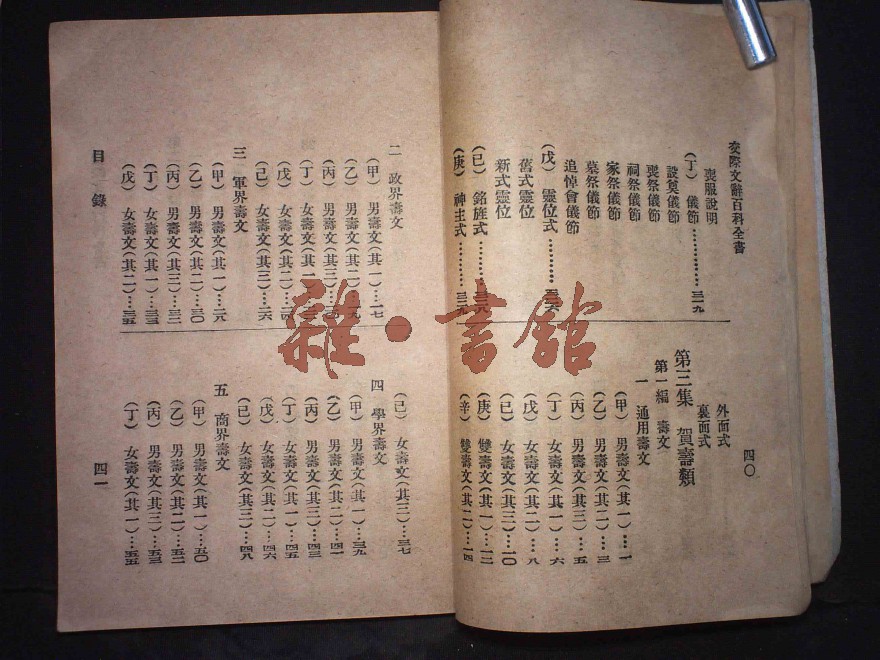 交際文辭百科全書
喪服說明
(丁) 儀節…………三一九
設奠儀節
喪祭儀節
祠祭儀節
家祭儀節
墓祭儀節
追悼會儀節
(戊) 靈位式…………三二六
舊式靈位
新式靈位
(已) 銘旌式…………三二八
(庚) 神主式…………三二九
外面式
裏面式
第三集 賀壽類
第一編 壽文
一 通用壽文
(甲) 男壽文(其一)…一
(乙) 男壽文(其二)…三
(丙) 男壽文(其三)…五
(丁) 女壽文(其一)…六
(戊) 女壽文(其二)…八
(已) 女壽文(其三)…一〇
(庚) 雙壽文(其一)…一二
(辛) 雙壽文(其二)…一四
四〇
二 政界壽文
(甲) 男壽文(其一)…一七
(乙) 男壽文(其二)
(丙) 男壽文(其三)
(丁) 女壽文(其一)
(戊) 女壽文(其二)
(已) 女壽文(其三)…二六
三 軍界壽文
(甲) 男壽文(其一)…二八
(乙) 男壽文(其二)…三〇
(丙) 男壽文(其三)…三二
(丁) 女壽文(其一)…三三
(戊) 女壽文(其二)…三五
(已) 女壽文(其三)…三七
四 學界壽文
(甲) 男壽文(其一)…三九
(乙) 男壽文(其二)…四一
(丙) 男壽文(其三)…四三
(丁) 女壽文(其一)…四五
(戊) 女壽文(其二)…四六
(已) 女壽文(其三)…四八
五 商界壽文
(甲) 男壽文(其一)…五〇
(乙) 男壽文(其二)…五二
(丙) 男壽文(其三)…五三
(丁) 女壽文(其一)…五五
目錄
四一
雜·書館